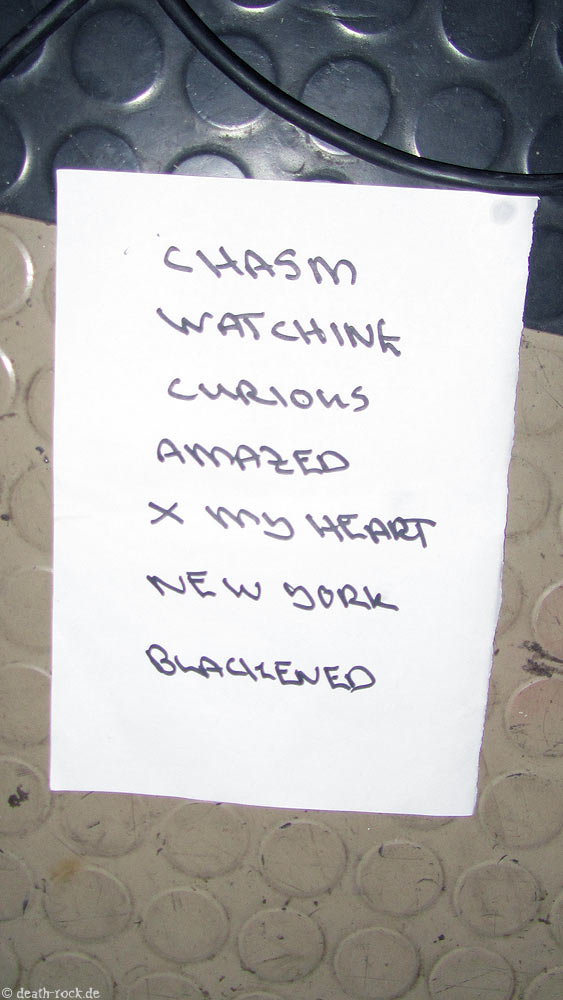 CHASM
WATCHING
CURIOUS
AMAZED
X MY HEART
NEW YORK
BLACKENED
© death-rock.de